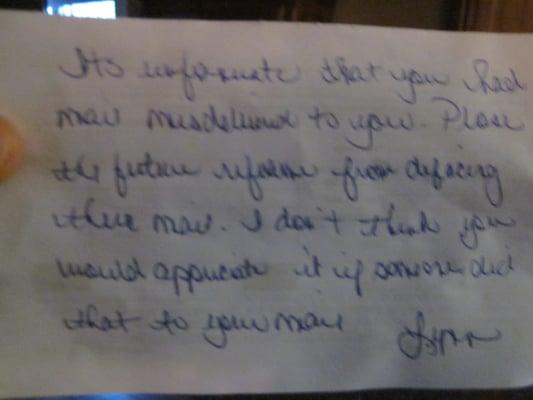 Its unfortunate that you had
mail misdelivered to you. Please
the future refraine from defacing
there mail. I don't think you
would appreciate it if someone did
that to your mail
Lynn